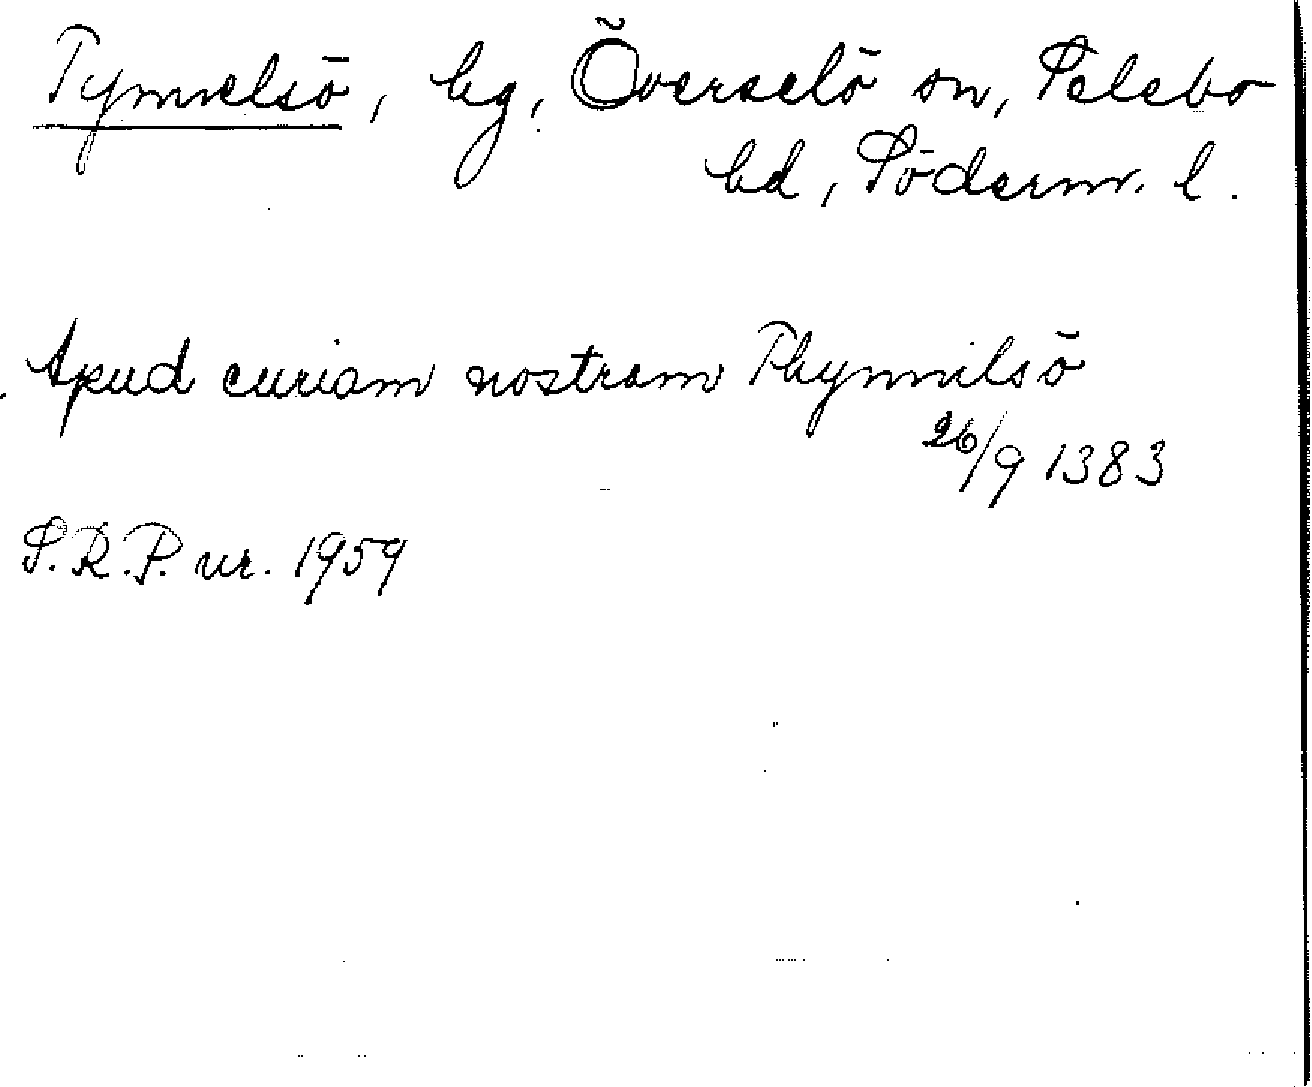 Tynnelsö, hg, Överselö sn, Selebo
hd, Söderm. l.
Apud curiam nostram Thynnilsö
26/9 1383
S.R.P. nr. 1959